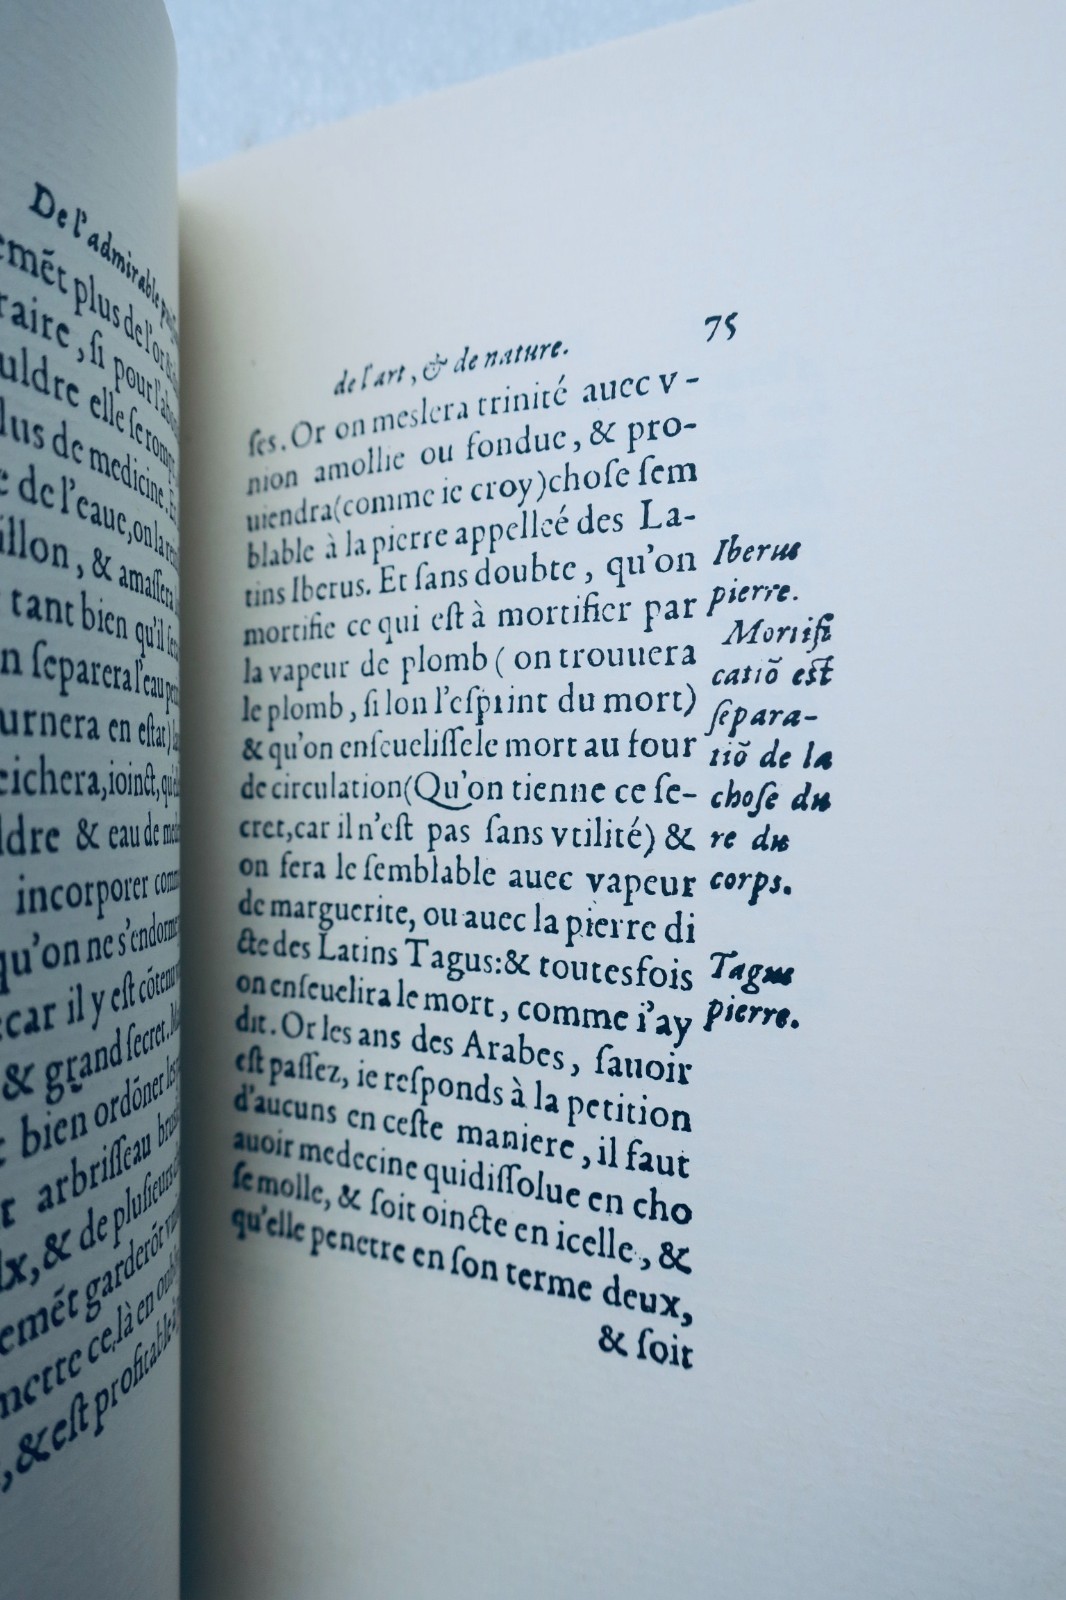 De l'admirable
emẽt plus de l'or
raire, ſi pour l'abon
uldre elle ſe romp
lus de medicine. Et
e de l'eaue, on la
illon, & amaſſera
tant bien qu'il ſera
n ſeparera l'eau
urnera en eſtat)
eichera, ioinct, qu
ldre & eau de me
incorporer comm
qu'on ne s'endorme
car il y eſt cõtenu
& grand ſecret. Ma
bien ordõner les
r arbriſſeau
lx, & de pluſieurs
emẽt garderõt
mette ce, là en oubli
, & eſt profitable
de l'art, & de nature. 75
ſes. Or on meslera trinité auec v-
nion amollie ou fondue, & pro-
uiendra (comme ie croy) choſe ſem
blable à la pierre appelleé des La-
tins Iberus. Et ſans doubte, qu'on
mortifie ce qui eſt à mortifier par
la vapeur de plomb ( on trouuera
le plomb, ſi lon l'eſprint du mort)
& qu'on enſeueliſſe le mort au four
de circulation (Qu'on tienne ce ſe-
cret, car il n'eſt pas ſans vtilité) &
on fera le ſemblable auec vapeur
de marguerite, ou auec la pierre di
cte des Latins Tagus: & toutesfois
on enſeuelira le mort, comme i'ay
dit. Or les ans des Arabes, ſauoir
eſt paſſez, ie reſponds à la petition
d'aucuns en ceſte maniere, il faut
auoir medecine qui diſſolue en cho
ſe molle, & ſoit oincte en icelle, &
qu'elle penetre en ſon terme deux,
& ſoit
Iberus
pierre.
Mortifi
catiõ eſt
ſepara-
tiõ de la
choſe du
re du
corps.
Tagus
pierre.